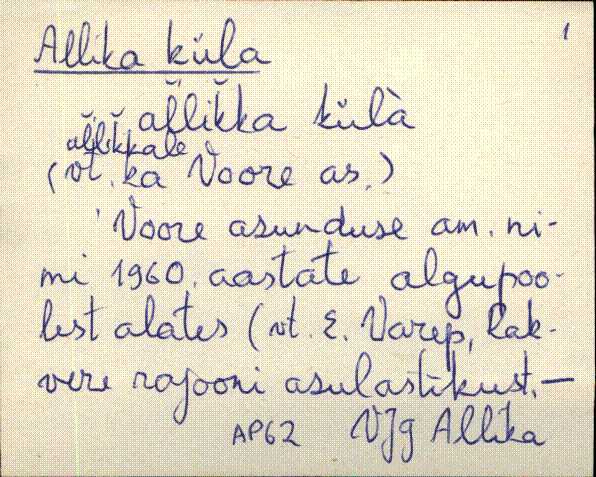 1
Allika küla
al̆lik̆ka külà
al̆lik̆kale
(vt. ka Voore as.)
Voore asunduse am. ni-
mi 1960. aastate algupoo-
lest alates (vt. E. Varep, Rak-
vere rajooni asulastikust. —
AP62 VJg Allika